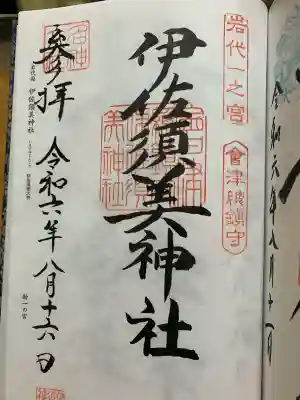 岩代一之宮
會津総鎮守
伊佐須美神社
奉拝
伊佐須美神社
令和六年八月十六日
令和六年八月十一日